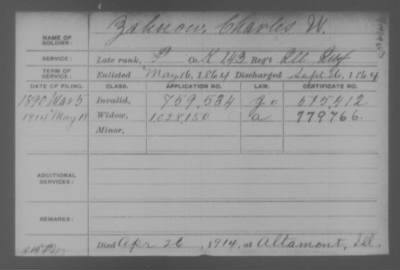 NAME OF SOLDIER: Zahnow, Charles W.
SERVICE: Late rank, P Co. K 143 Reg't Ill Inf
TERM OF SERVICE: Enlisted May 16, 1864 Discharged Sept. 26, 1864
DATE OF FILING. CLASS. APPLICATION NO. LAW. CERTIFICATE NO.
1890 Mar 5 Invalid, 759,534 go 515,412
1914 May 18 Widow, 1028150 a 779766.
Minor,
ADDITIONAL SERVICES:
REMARKS:
Died Apr 26, 1914, at Altamont, Ill.